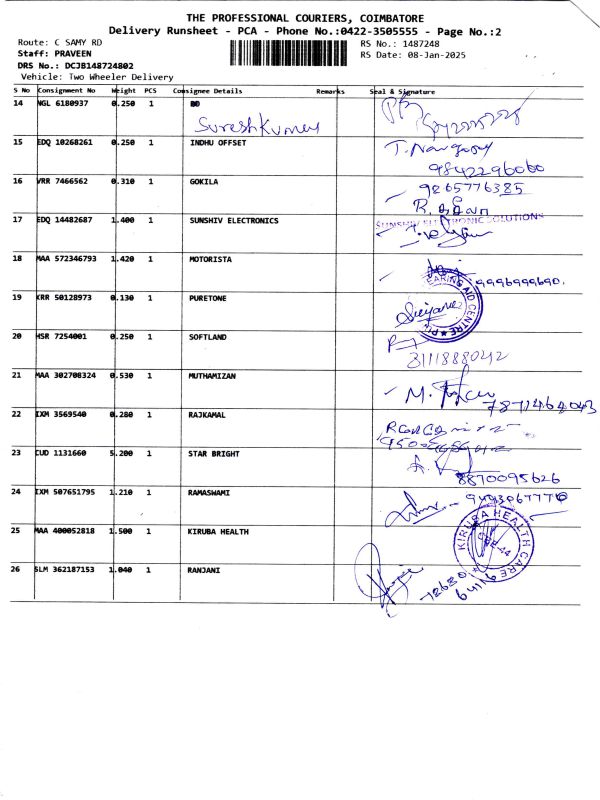 THE PROFESSIONAL COURIERS, COIMBATORE
Delivery Runsheet - PCA - Phone No.:0422-3505555 - Page No.:2
Route: C SAMY RD
RS No.: 1487248
Staff: PRAVEEN
RS Date: 08-Jan-2025
DRS No.: DCJB148724802
Vehicle: Two Wheeler Delivery
S No Consignment No Weight PCS Consignee Details Remarks Seal & Signature
14 NGL 6180937 0.250 1
Sureshkumar
15 EDQ 10268261 0.250 1 INDHU OFFSET
9842296060
16 VRR 7466562 0.310 1 GOKILA 9265776385
17 EDQ 14482687 1.400 1 SUNSHIV ELECTRONICS SUNSHIV ELECTRONIC SOLUTIONS
18 MAA 572346793 1.420 1 MOTORISTA
9996999690.
19 KRR 50128973 0.130 1 PURETONE HEARING AID CENTRE
20 HSR 7254001 0.250 1 SOFTLAND
21 MAA 302708324 0.530 1 MUTHAMIZAN
22 IXM 3569540 0.280 1 RAJKAMAL
23 CUD 1131660 5.200 1 STAR BRIGHT
8870095626
24 IXM 507651795 1.210 1 RAMASWAMI
25 MAA 400052818 1.500 1 KIRUBA HEALTH KIRUBA HEALTH CARE
CBE-44
26 SLM 362187153 1.040 1 RANJANI